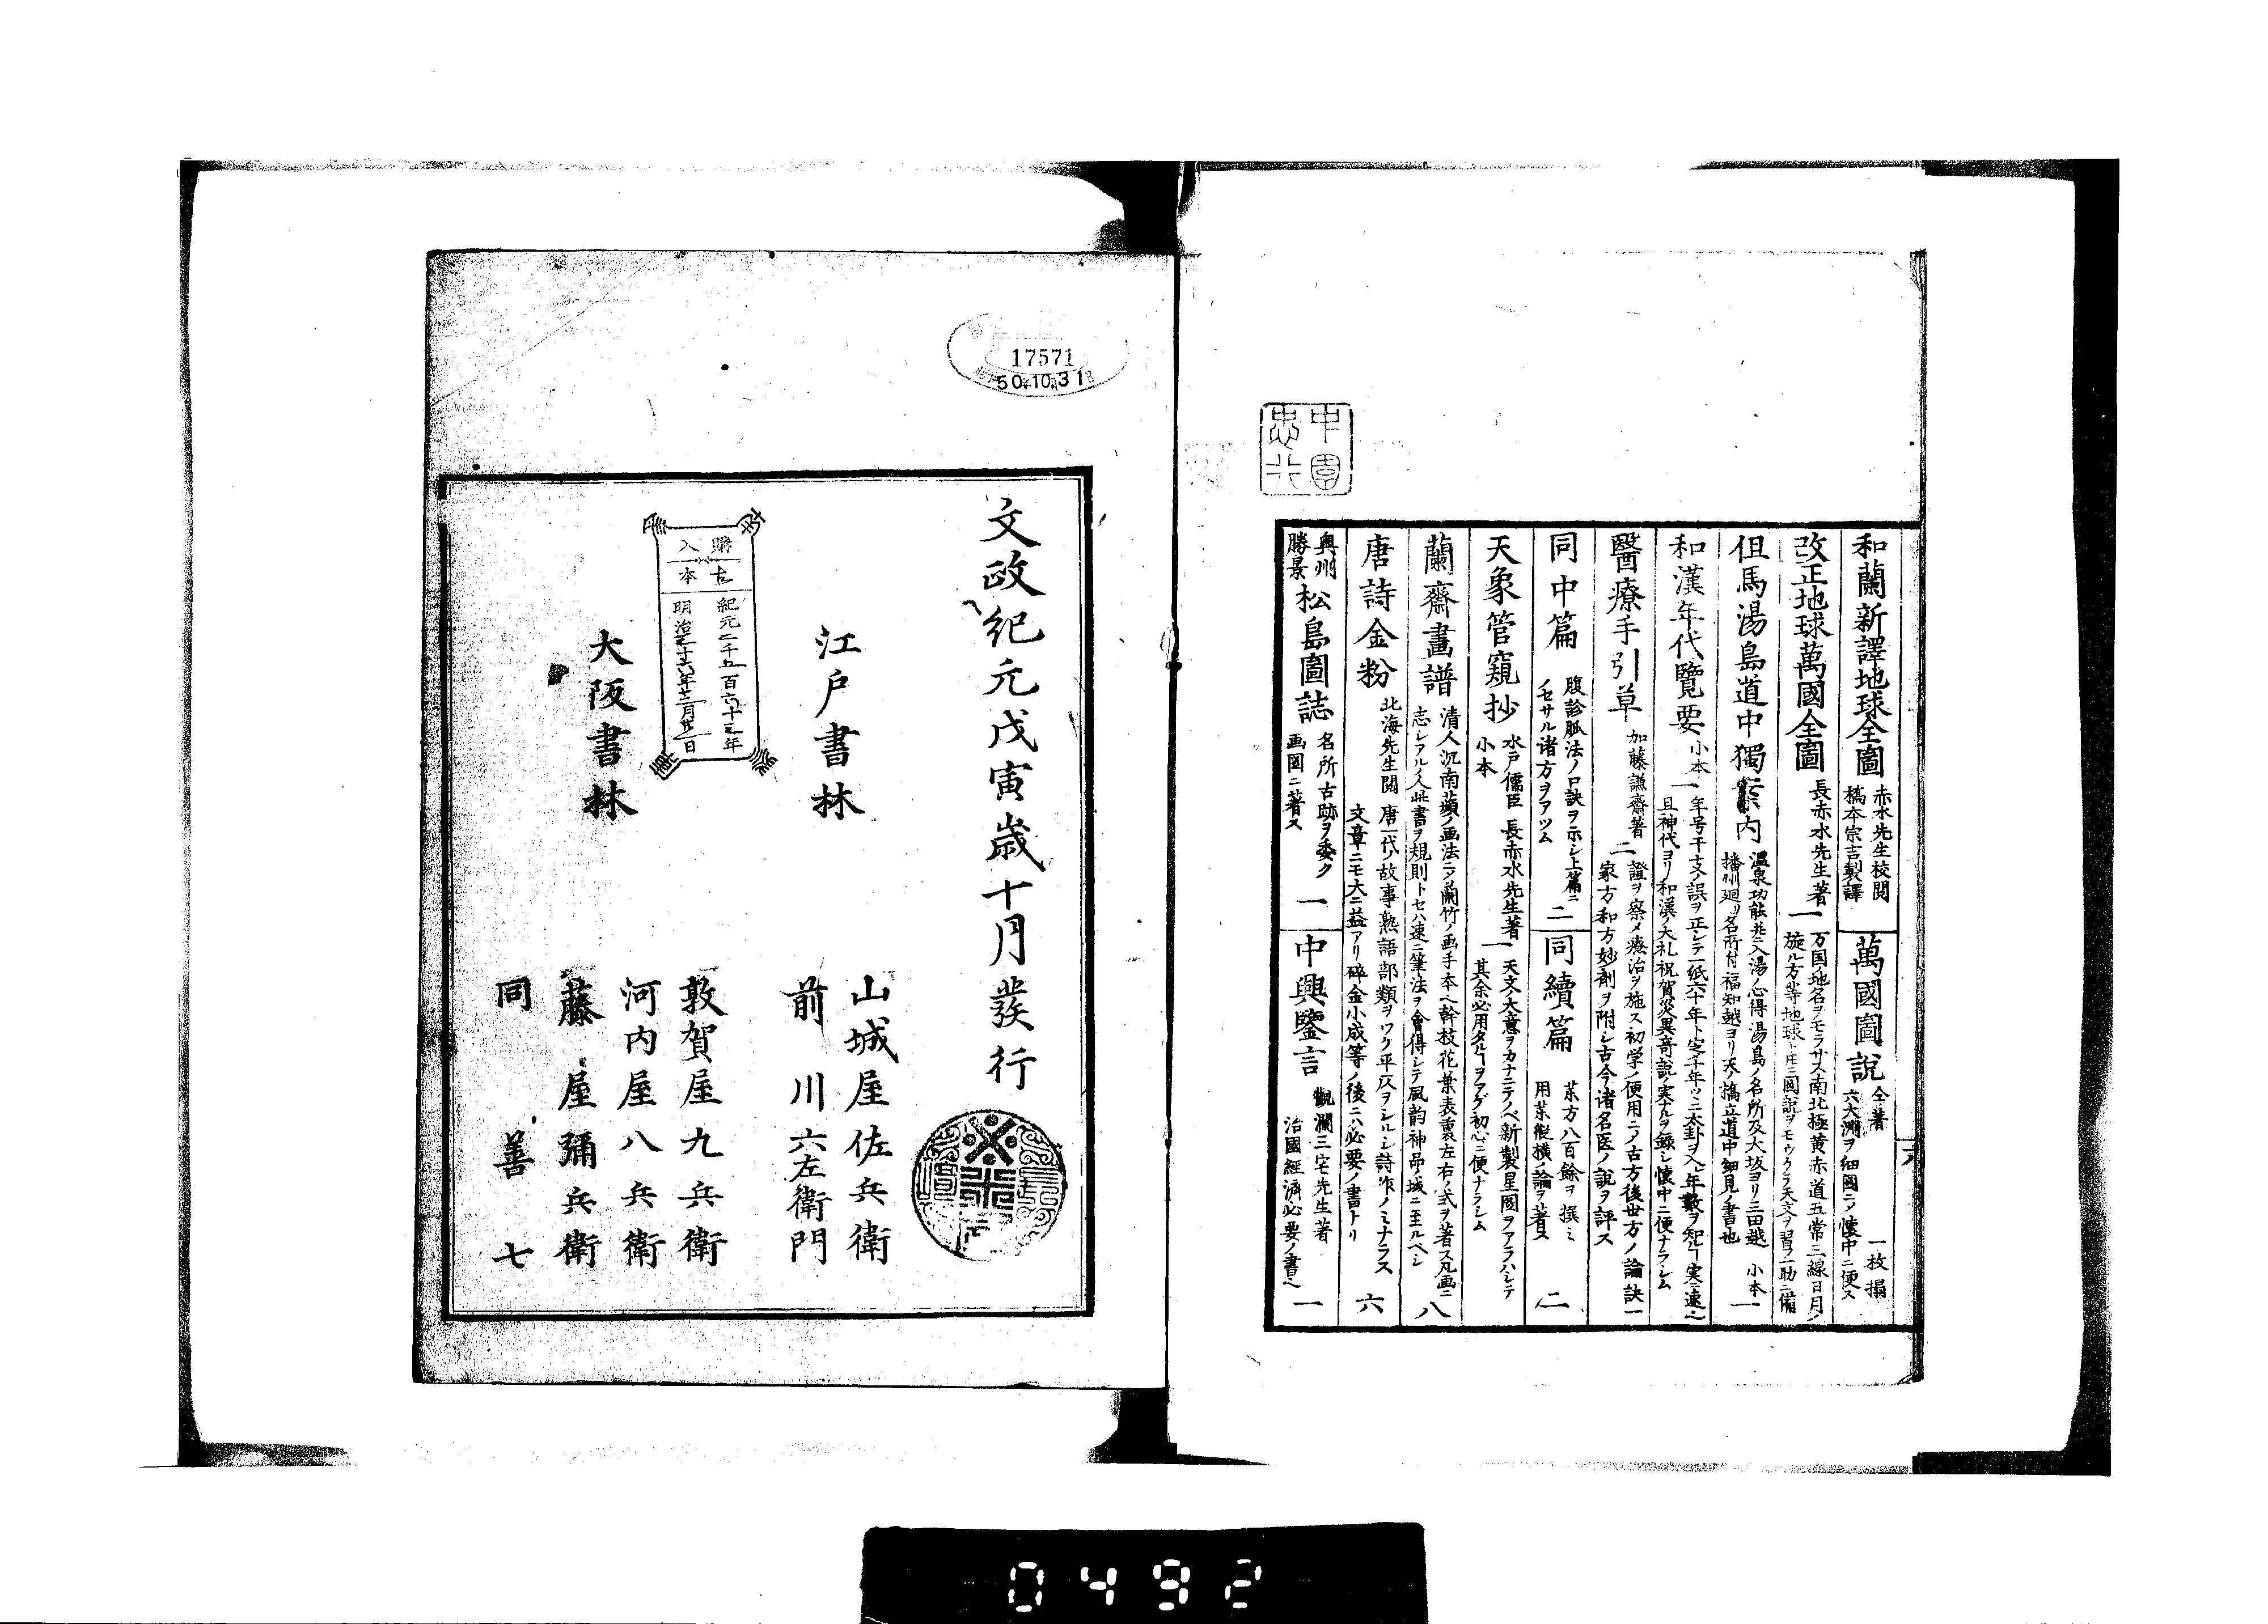 和蘭新譯地球全圖
赤水先生校閲
橋本宗吉製譯
萬國圖說
仝著
六大洲ヲ細圖ニノ懐中ニ便ス
一枚摺
改正地球萬國全圖
長赤水先生著
一
万国ノ地名ヲモラサス南北極黄赤道五常三線日月ノ
旋ル方等地球ト
但馬湯島道中獨案内
温泉功能并入湯ノ心得湯島ノ名所及大坂ヨリ三田越
播州廻リ名所付福知越ヨリ天ノ橋立道中細見ノ書也
小本
一
和漢年代覽要
小本
一
年号干支ノ誤ヲ正シテ一紙六十年ト定
且神代ヨリ和漢ノ大礼祝賀災異奇説ノ実ナルヲ錄シ懐中ニ便ナラシム
醫療手引草
加藤謙齋著
二
證ヲ察メ療治ヲ施ス初学ノ便用ニノ古方後世方ノ論訣一
家方和方妙剤ヲ附シ古今诸名医ノ說ヲ評ス
同中篇
腹診脈法ノ口訣ヲ示シ上篇ニ
ノセサル诸方ヲアツム
二
同續篇
薬方八百餘ヲ撰ミ
用薬縦横ノ論ヲ著ス
二
天象管窺抄
水戸儒臣 長赤水先生著
小本
一
天文大意ヲカナニテノベ新製星圖ヲアラハシテ
其余必用タルヿヲアゲ初心ニ便ナラシム
蘭齋畫譜
清人沉南蘋ノ画法ニテ蘭竹ノ画手本ヘ幹枝花葉表裏左右ノ式ヲ著ス凡画ニ
志シアル人此書ヲ規則トセハ速ニ筆法ヲ會得シテ風韵神品ノ域ニ至ルベシ
八
唐詩金粉
北海先生閲
唐一代ノ故事熟語部類ヲワケ平仄ヲシルシ詩作ノミナラス
文章ニモ大ニ益アリ碎金小成等ノ後ニハ必要ノ書ナリ
六
奥州
勝景
松島圖誌
名所古跡ヲ委ク
画圖ニ著ス
一
中興鑒言
觀瀾三宅先生著
治國經濟必要ノ書ヘ
一
六
中園
忠大
17571
50.10.31
文政紀元戊寅歳十月發行
江戸書林
山城屋佐兵衛
前川六左衛門
大阪書林
敦賀屋九兵衛
河内屋八兵衛
藤屋彌兵衛
同善七
購入
古本
紀元二千五百六十三年
明治三十六年十二月廿二日
0492